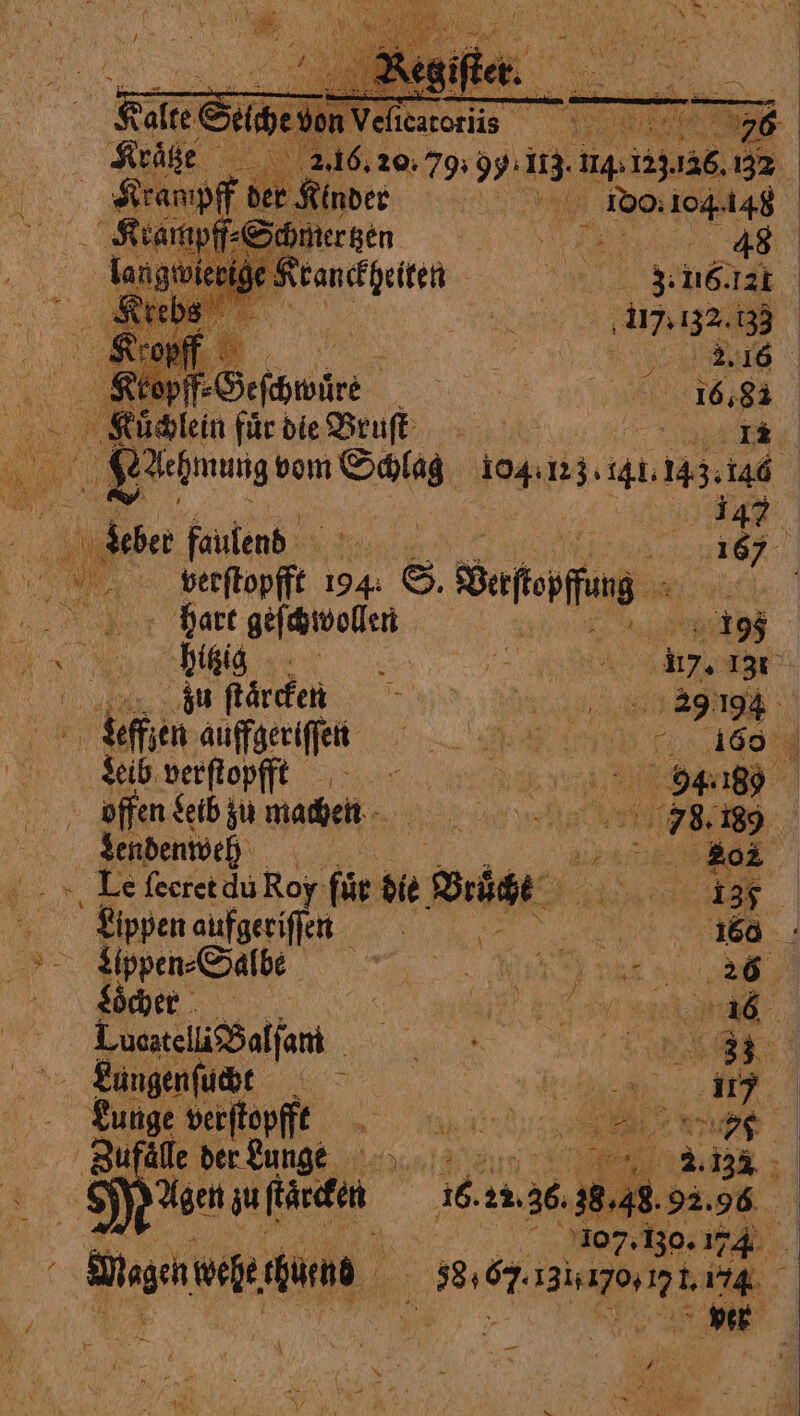 Regiſter.
Kalte Seiche von Veſicatoriis 76
Kråtze 2.16. 20. 79. 99. 113. 114. 123.126. 132
Krampff der Kinder 100. 104.148
Krampff-Schmertzen 48
langwierige Kranckheiten 3. 116.121
Krebs 117. 132.133
Kropff 2.16
Kropff-Geſchwůre 16.82
Kůchlein fůr die Bruſt 12
LAehmung vom Schlag 104. 123. 141. 143. 146
147
Leber faulend 167
verſtopfft 194. S. Verſtopffung
hart geſchwollen 195
hitzig 117. 131
zu ſtårcken 29 194
Leffzen auffgeriſſen 160
Leib verſtopfft 94. 189
offen Leib zu machen 78. 189
Lendenweh 202
Le ſecret du Roy fůr die Brůche 135
Lippen aufgeriſſen 160
Lippen-Salbe 26
Lôcher 16
Lucatelli Balſam 33
Lungenſucht 117
Lunge verſtopfft 75
Zufålle der Lunge 2. 132
MAgen zu ſtårcken 16. 22. 36. 38.48. 92.96
107. 130. 174
Magen wehe thuend 58, 67. 131, 170, 171. 174
ver